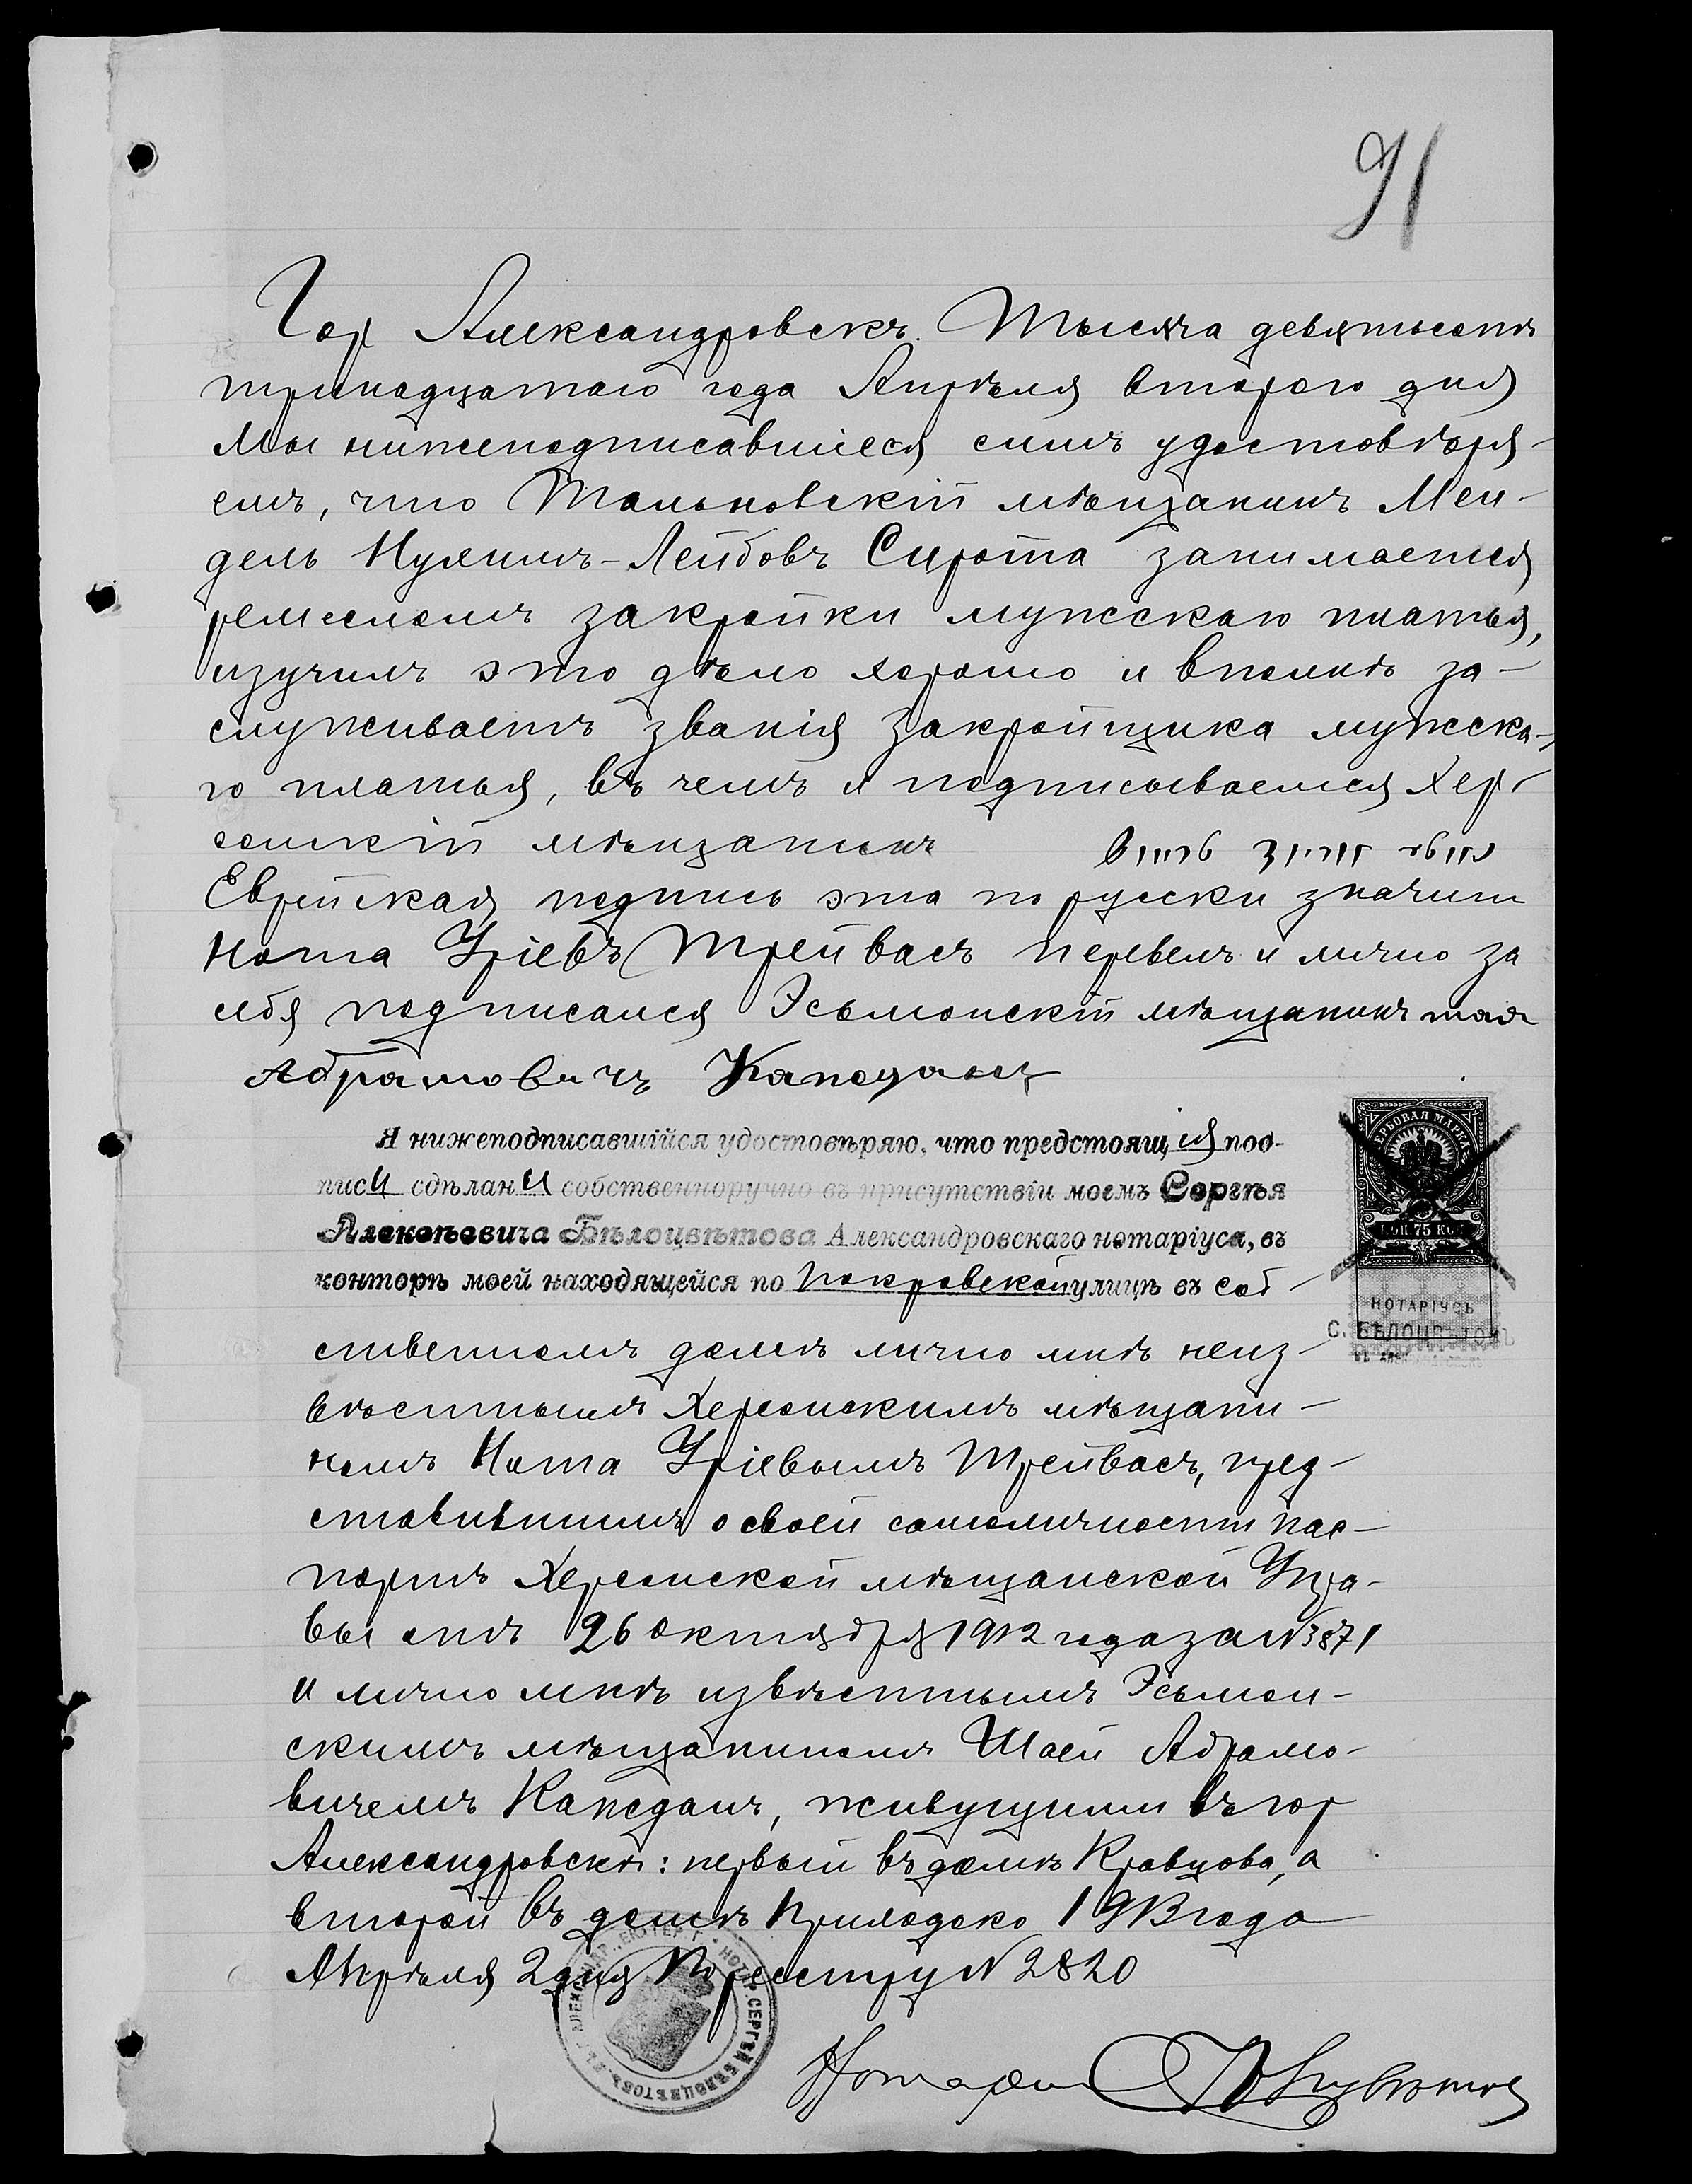 91
Гор Александровскъ. Тысяча девятьсотъ
тринадцатаго года Апрѣля второго дня
Мы нижеподписавшіеся симъ удостовѣря-
емъ, что Тальновскій мѣщанинъ Мен-
дель Нухимъ-Лейбовъ Сирота занимается
ремесломъ закройки мужскаго платья,
изучилъ это дѣло хорошо и вполнѣ за-
служиваетъ званія закройщика мужска-
го платья, въ чемъ и подписываемся Хер-
сонскій мѣщанинъ
Еврейская подпись эта по русски значитъ
Нота Уріевъ Трейвасъ перевелъ и лично за
себя подписался Эсьмонскій мѣщанинъ Шая
Абрамовичъ Кажданъ
Я нижеподписавшійся удостовѣряю, что предстоящія под-
писи сдѣланы собственноручно въ присутствіи моемъ Сергѣя
Алексѣевича Бѣлоцвѣтова Александровскаго нотаріуса, въ
конторѣ моей находящейся по Покровской улицѣ въ соб-
ственномъ домѣ лично мнѣ неиз-
вѣстнымъ Херсонскимъ мѣщани-
номъ Нота Уріевымъ Трейвасъ, пред-
ставившимъ о своей самоличности пас-
портъ Херсонской мѣщанской Упра-
вы отъ 26 октября 1912 года за N 3871
и лично мнѣ извѣстнымъ Эсьмон-
скимъ мѣщаниномъ Шаей Абрамо-
вичемъ Кажданъ, живущими въ гор
Александровскѣ: первый въ домѣ Кравцова, а
второй въ домѣ Прилодско 1913 года
Апрѣля 2 дня По реестру N 2820
Нотаріусъ
ГЕРБОВАЯ МАРКА
75 КОП
НОТАРІУСЪ
С. БѢЛОЦВѢТОВЪ
НОТАР. СЕРГѢЙ БѢЛОЦВѢТОВЪ